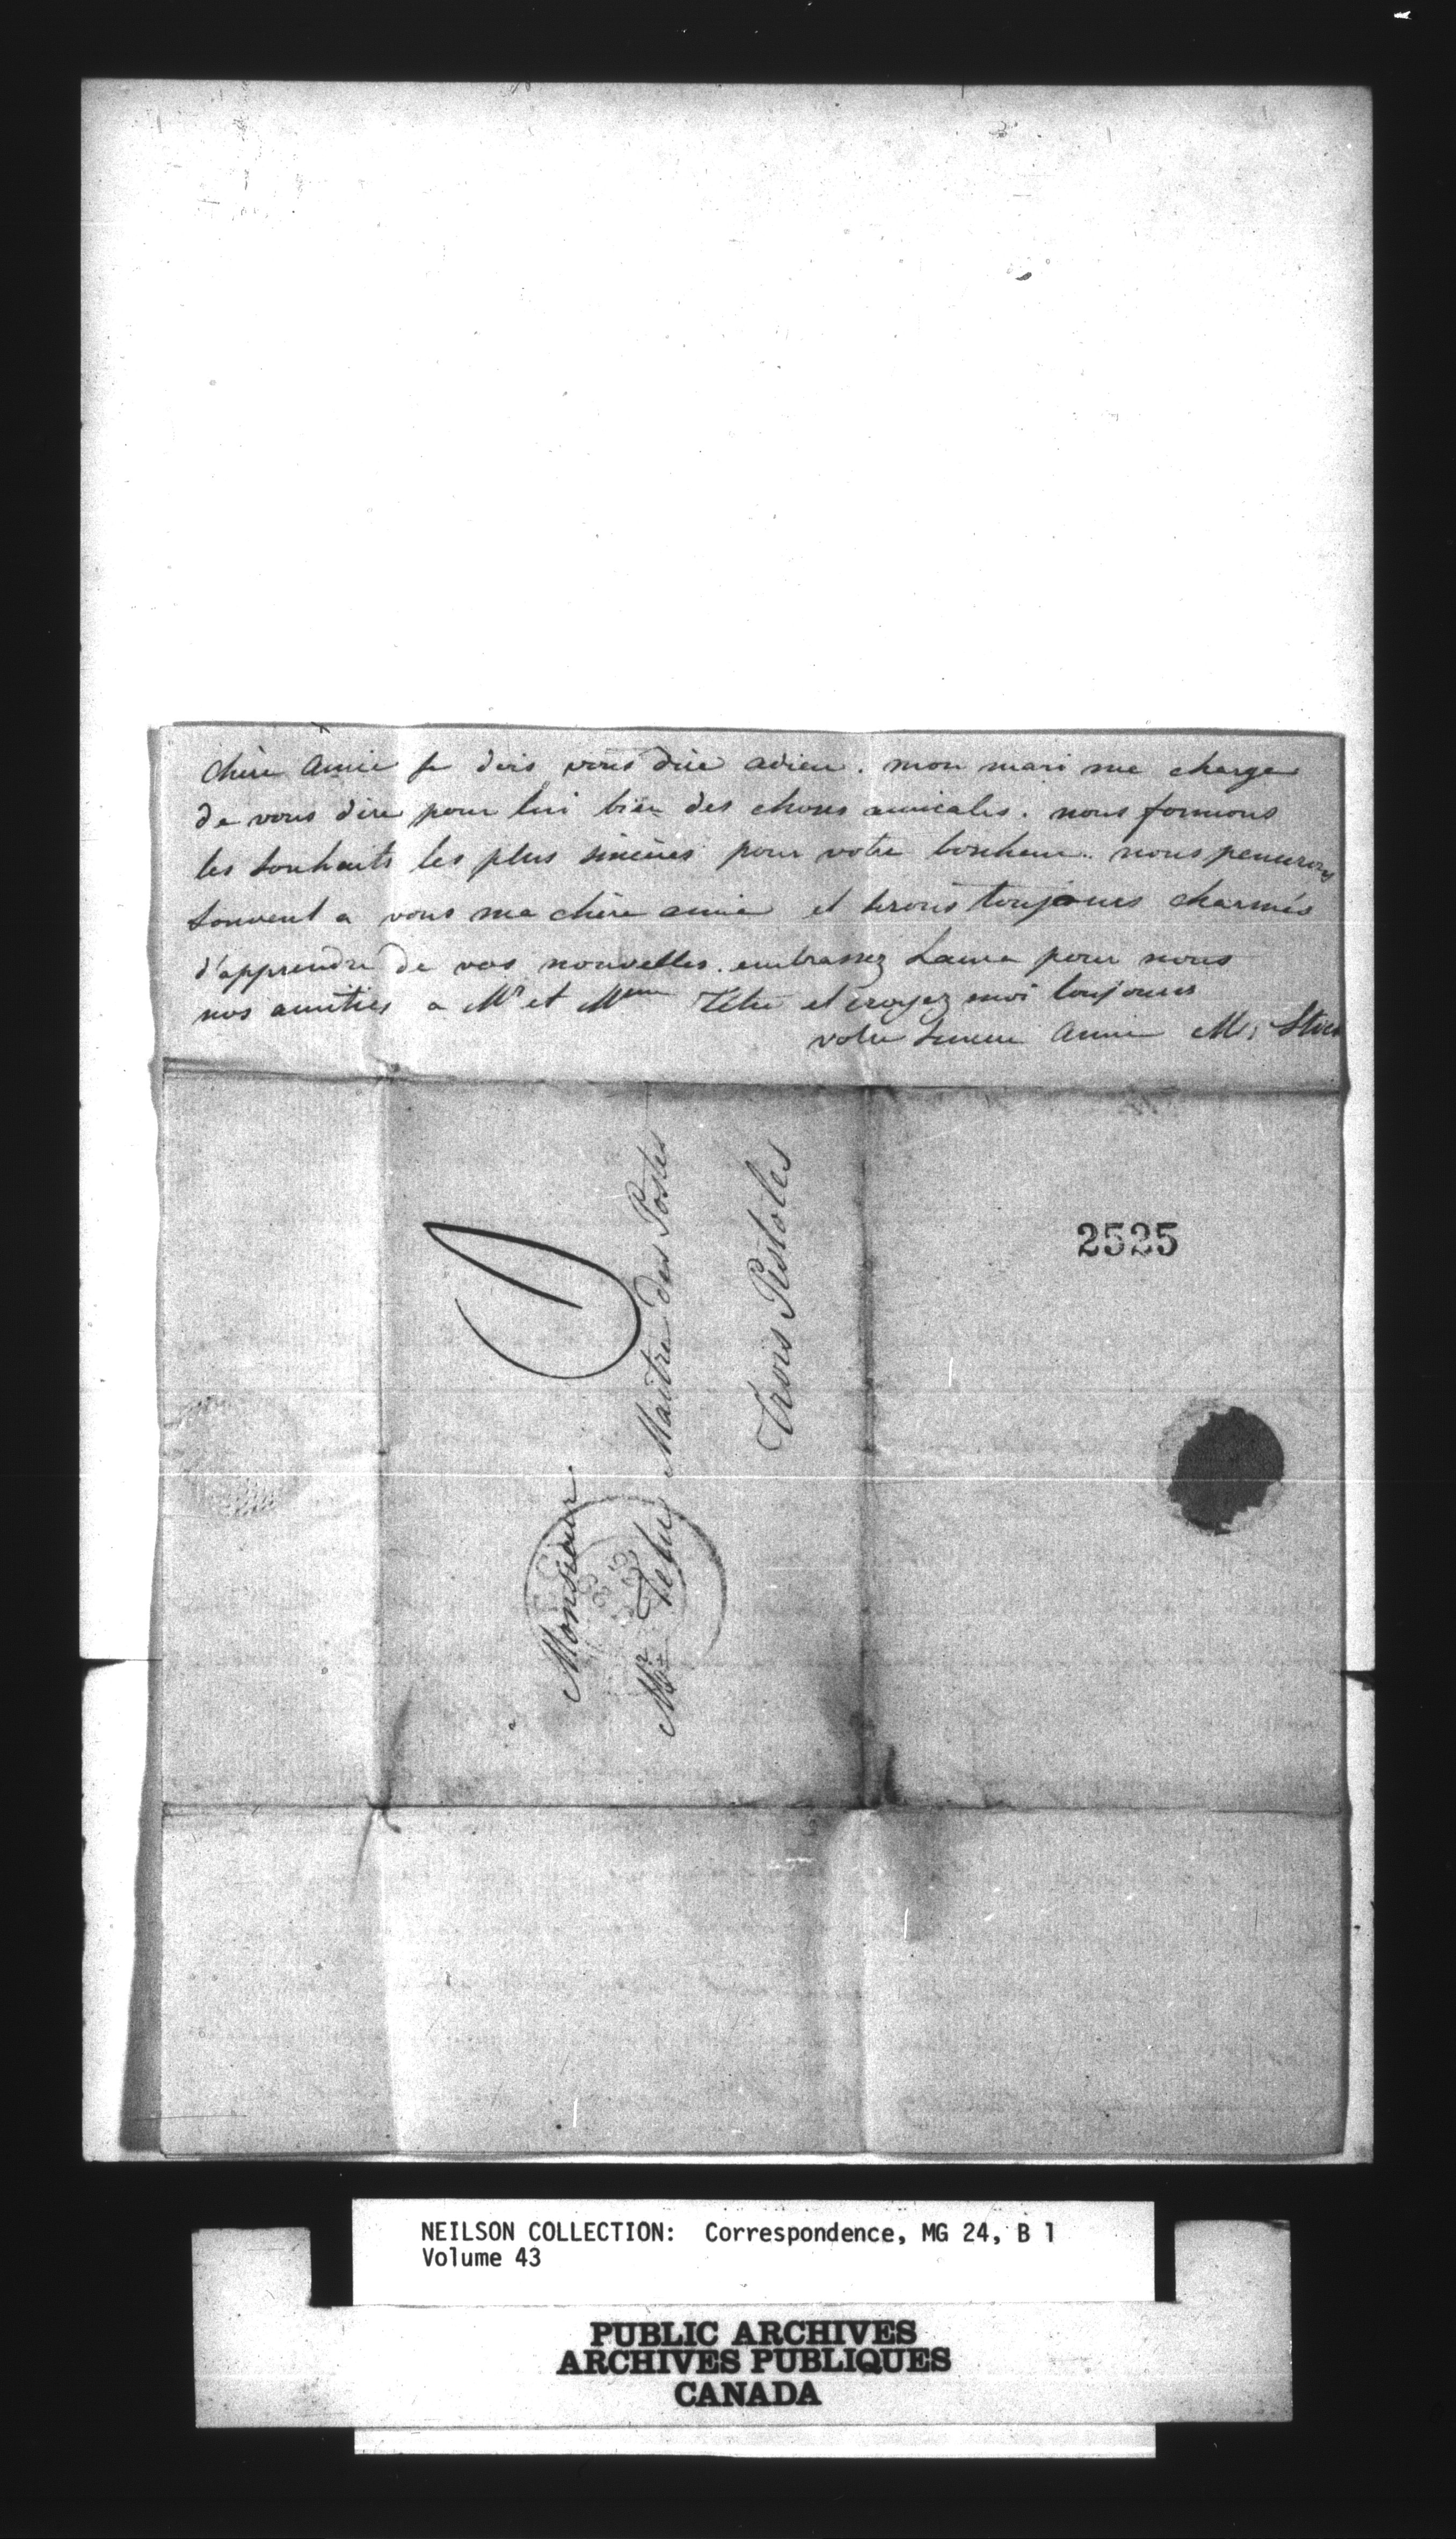 chère amie je dois vous dire adieu. mon mari me charge
de vous dire pour lui bien des choses amicales. nous formons
les souhaits les plus sincères pour votre bonheur.. nous penserons
souvent a vous ma chère amie et serons toujours charmés
d'apprendre de vos nouvelles. embrassez Laura pour nous
nos amitiés a Mr et Mme Tétu et croyez moi toujours
votre sincere amie M;
Monsieur
Mr Tetu Maître des Postes
Trois Pistoles
2525
NEILSON COLLECTION: Correspondence, MG 24, B 1
Volume 43
PUBLIC ARCHIVES
ARCHIVES PUBLIQUES
CANADA